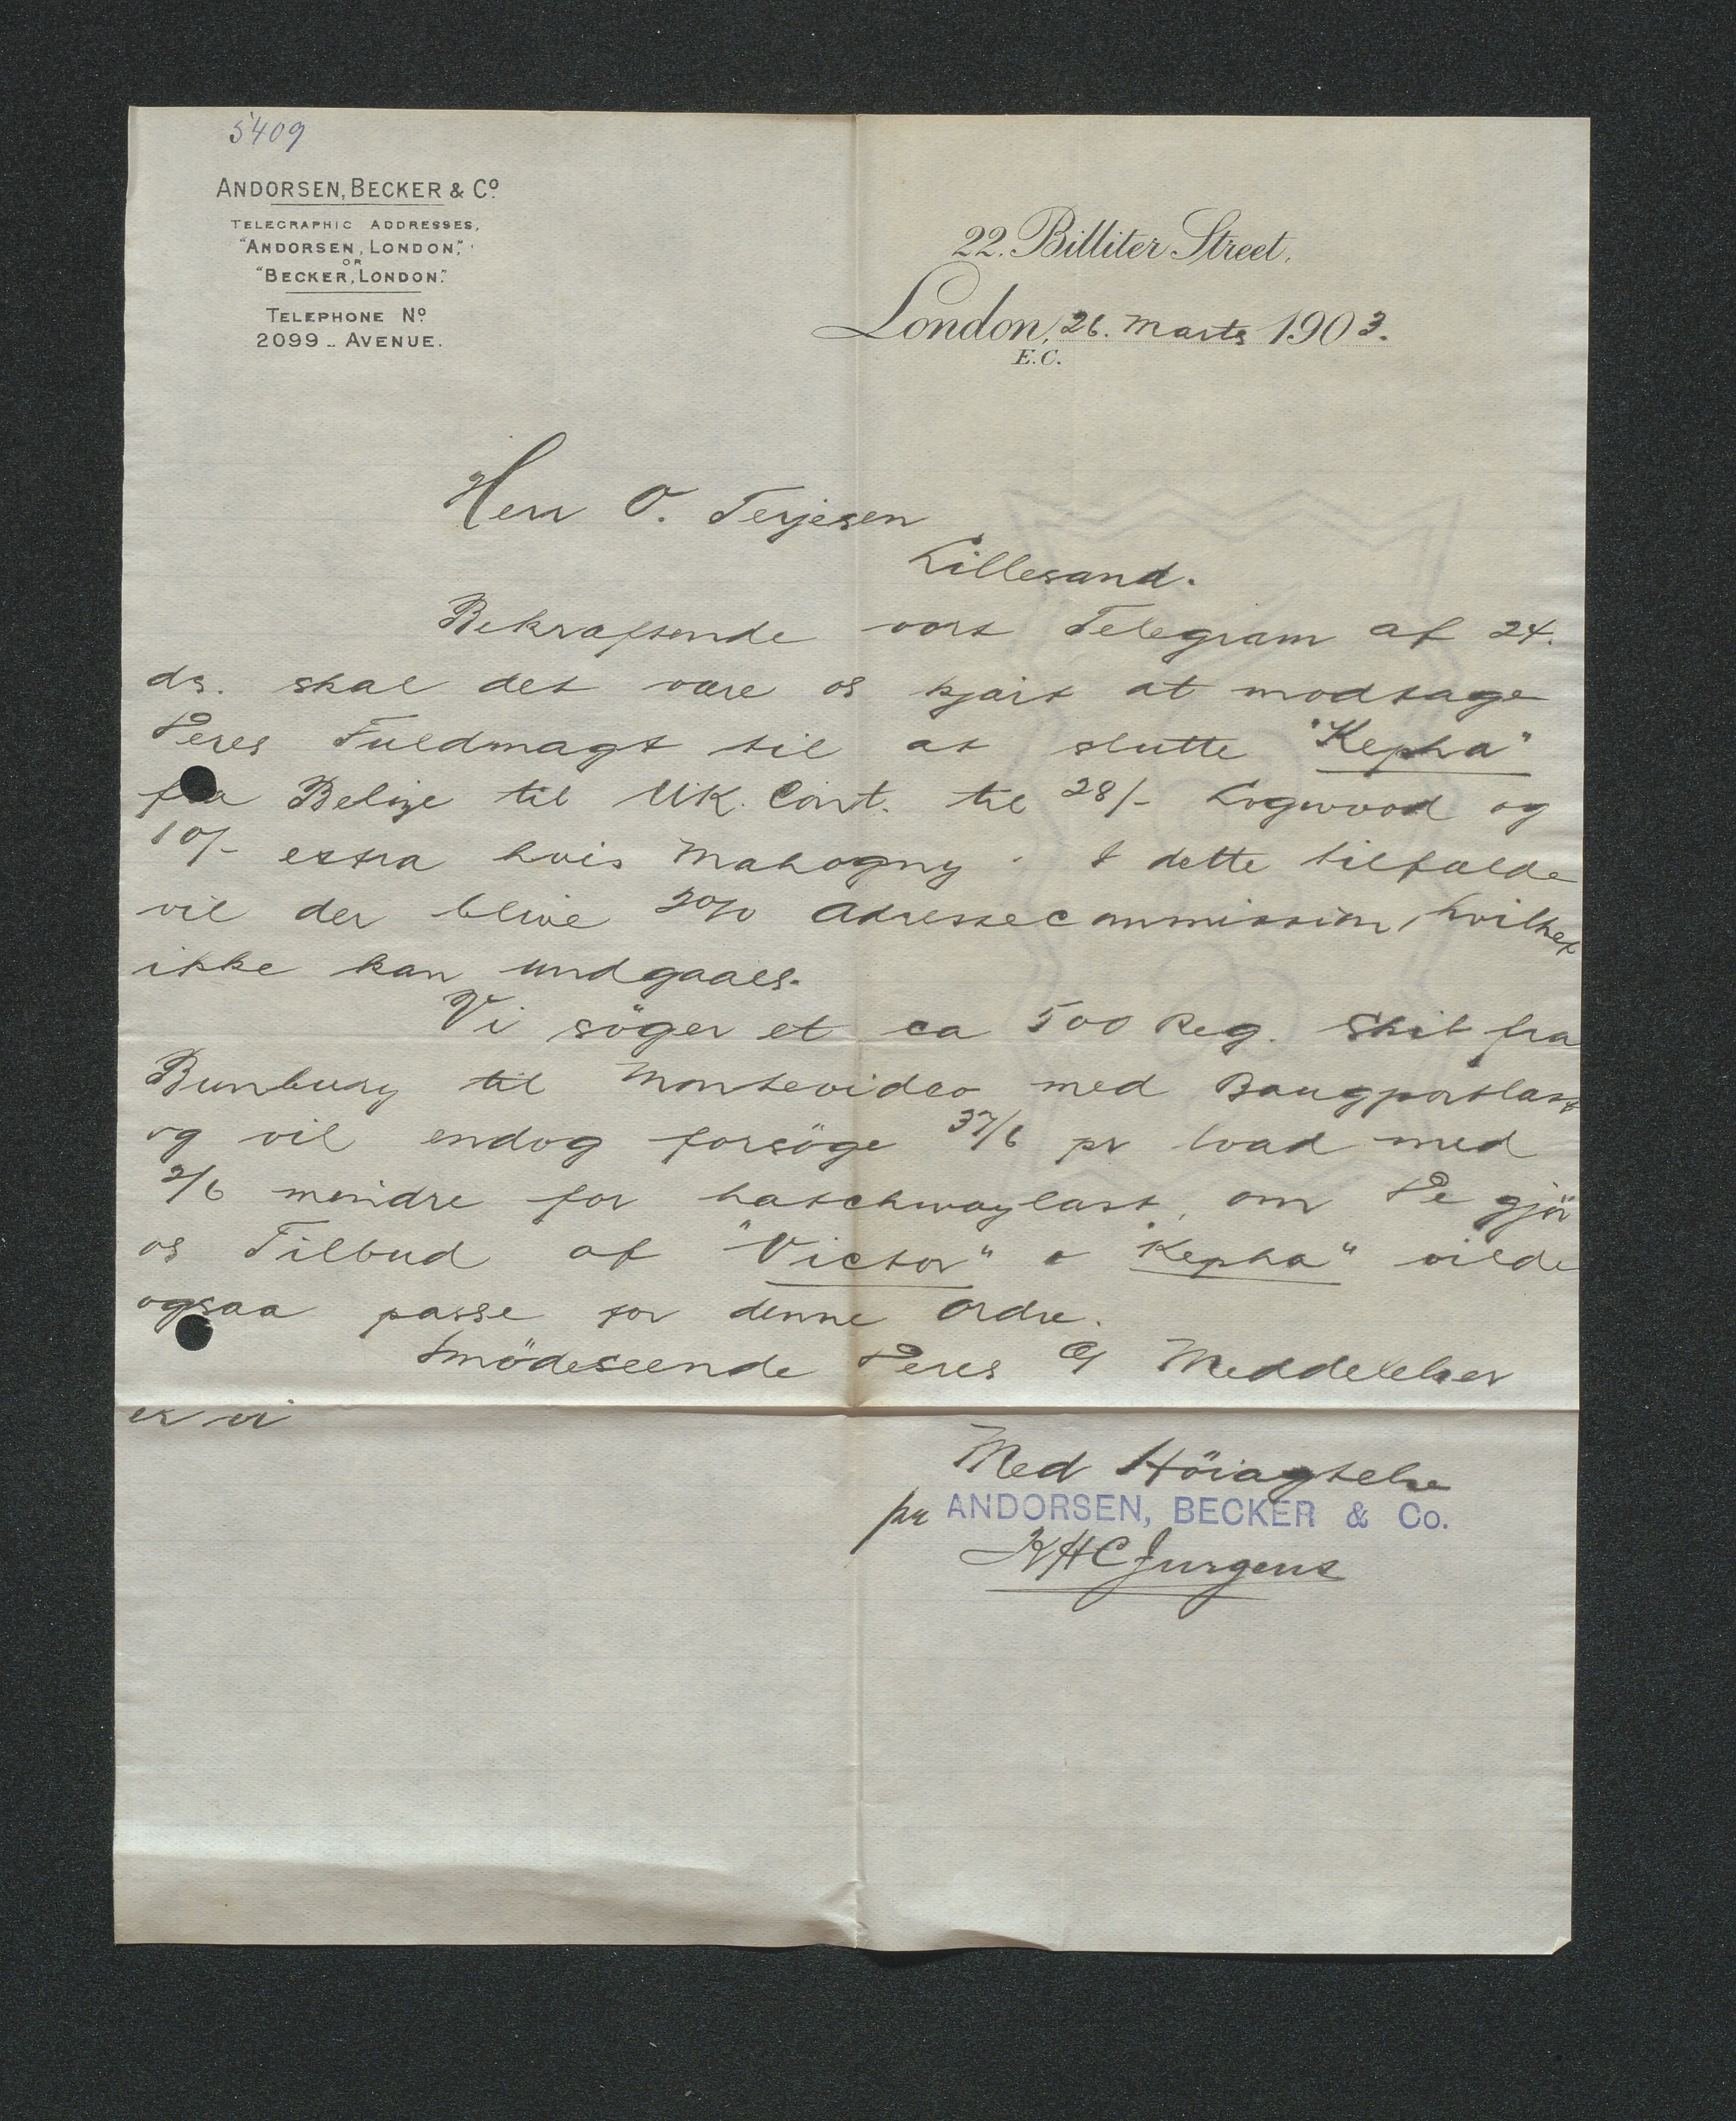 5409
ANDORSEN, BECKER & Cº.
TELEGRAPHIC ADDRESSES,
"ANDORSEN, LONDON,"
OR
"BECKER, LONDON."
TELEPHONE Nº.
2099 - AVENUE.
22. Billiter Street,
London, 26. Marts 1903.
E.C.
Herr O. Terjesen
Lillesand.
Bekræftende vort Telegram af 24.
ds. skal det være os kjært at modtage
Deres Fuldmagt til at slutte "Kepha"
fra Belize til UK. Cont. til 28/- Logwood og
10/- extra hvis Mahogny. I dette tilfælde
vil der blive 2% Adressecommission, hvilket
ikke kan undgaaes.
Vi söger et ca 500 Reg. Skib fra
Bunbury til Montevideo med Baugportlast
og vil endog forsöge 37/6 pr load med
2/6 mindre for hatchwaylast, om De gjör
os Tilbud af "Victor" "Kepha" vilde
ogsaa passe for denne Ordre.
Imödeseende Deres Meddelelser
er vi
Med Höiagtelse
pr ANDORSEN, BECKER & Co.
KHC Jurgens